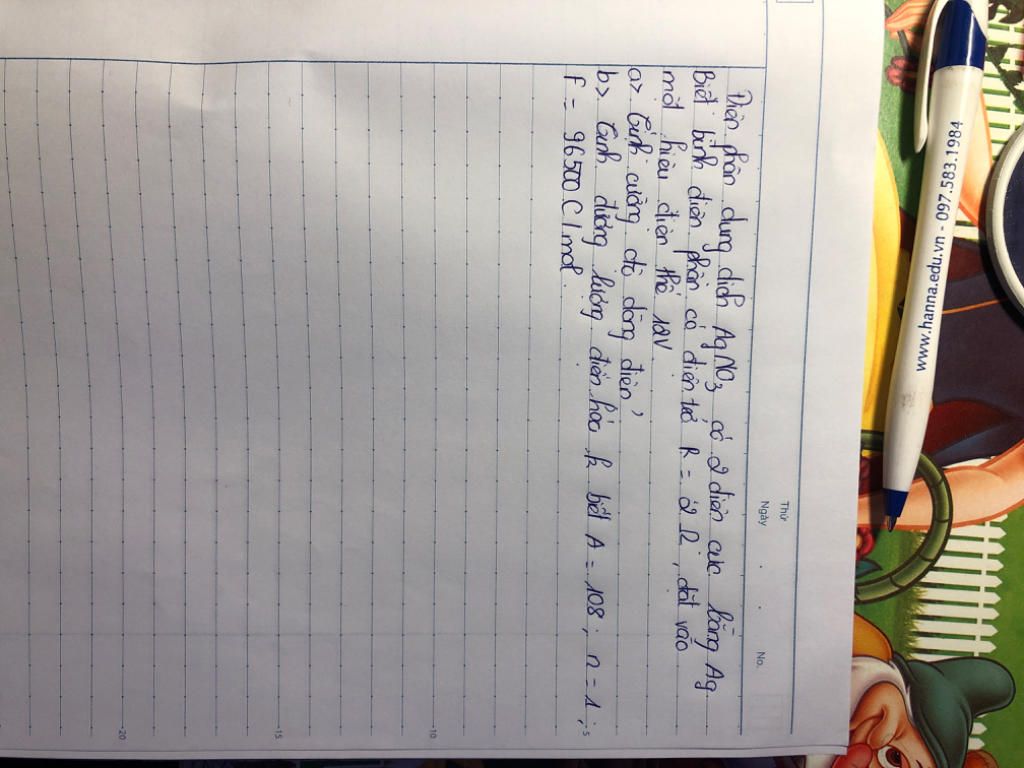 Thứ
Ngày
No.
Điện phân dung dịch AgNO3 có 2 điện cực bằng Ag
Biết bình điện phân có điện trở R = 2 Ω, đặt vào
một hiệu điện thế 12V
a> Tính cường độ dòng điện
b> Tính đương lượng điện hóa k biết A = 108; n = 1;
F = 96500 C/mol.
5
10
15
20
www.hanna.edu.vn - 097.583.1984